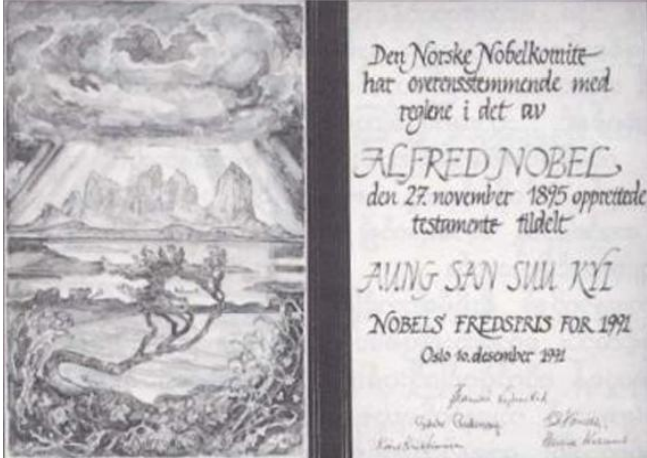 Den Norske Nobelkomite
har overensstemmende med
reglene i det av
ALFRED NOBEL
den 27. november 1895 opprettede
testamente tildelt
AUNG SAN SUU KYI
NOBELS FREDSPRIS FOR 1991
Oslo 10. desember 1991